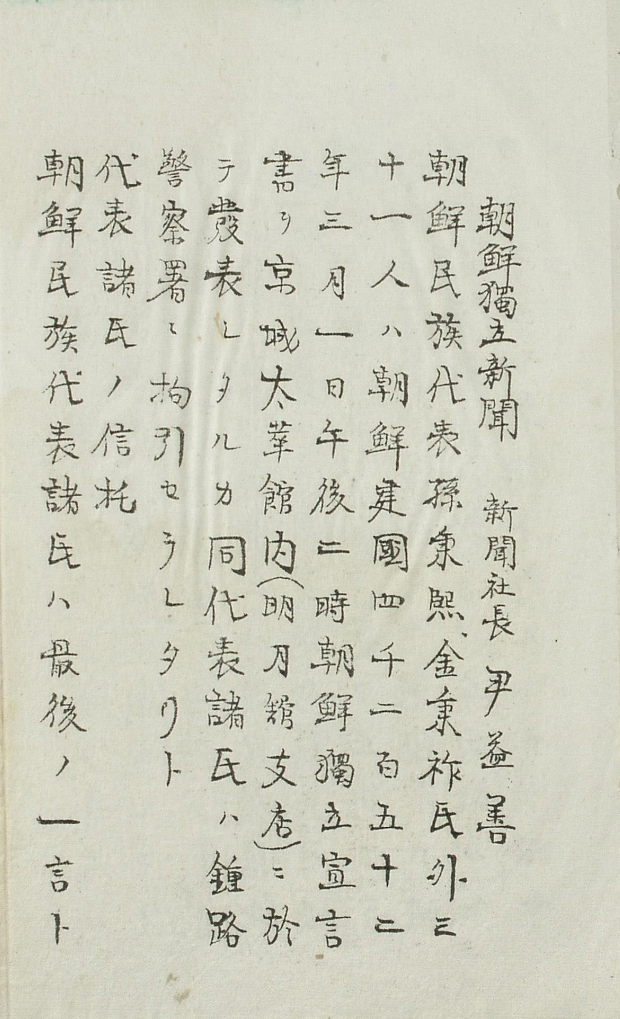 朝鮮獨立新聞　新聞社長　尹益善
朝鮮民族代表孫秉熙、金秉祚氏外三
十一人ハ朝鮮建國四千二百五十二
年三月一日午後二時朝鮮獨立宣言
書ヲ京城太華館内（明月舘支店）ニ於
テ發表シタルカ同代表諸氏ハ鍾路
警察署ニ拘引セラレタリト
代表諸氏ノ信托
朝鮮民族代表諸氏ハ最後ノ一言ト